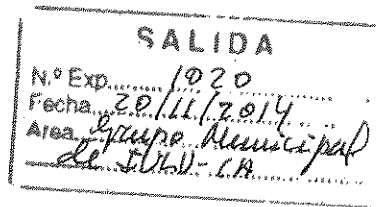 SALIDA
N.º Exp. 1020
Fecha 20/11/2014
Area Grupo Municipal
de IULV-CA